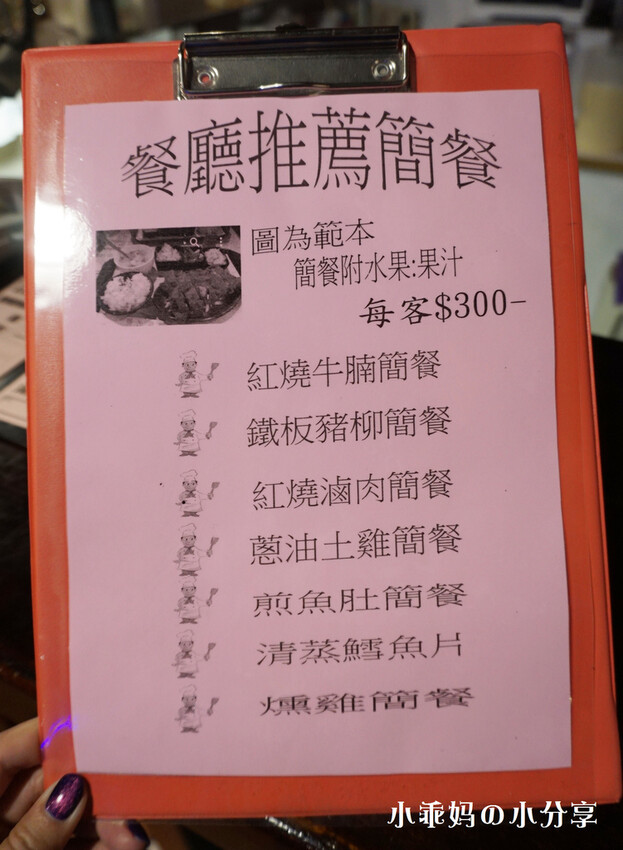 餐廳推薦簡餐
圖為範本
簡餐附水果:果汁
每客$300-
紅燒牛腩簡餐
鐵板豬柳簡餐
紅燒滷肉簡餐
蔥油土雞簡餐
煎魚肚簡餐
清蒸鱈魚片
燻雞簡餐
小乖妈の小分享